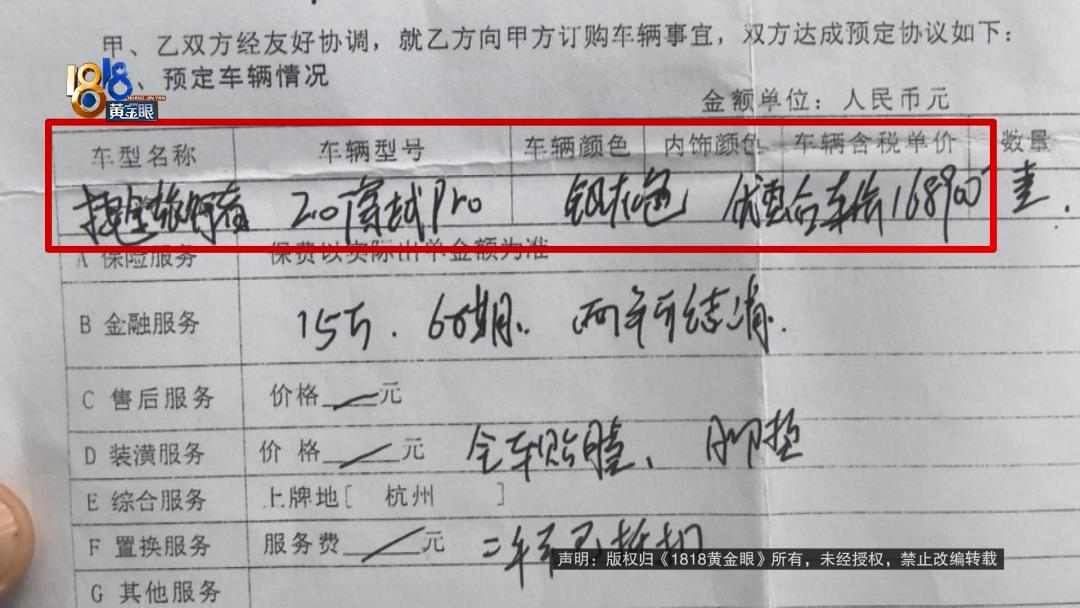 甲、乙双方经友好协调，就乙方向甲方订购车辆事宜，双方达成预定协议如下：
、预定车辆情况
1818
HUANG JIN YAN
黄金眼
金额单位：人民币元
车型名称 车辆型号 车辆颜色 内饰颜色 车辆含税单价 数量
2.0 Pro 银灰色 优惠后车价168900 壹.
A 保险服务 保费以实际出单金额为准
B 金融服务 15万. 60期. 两年可结清.
C 售后服务 价格 元
D 装潢服务 价 格 元 全车贴膜、脚垫
E 综合服务 上牌地[ 杭州 ]
F 置换服务 服务费 元 二年
G 其他服务
声明：版权归《1818黄金眼》所有，未经授权，禁止改编转载